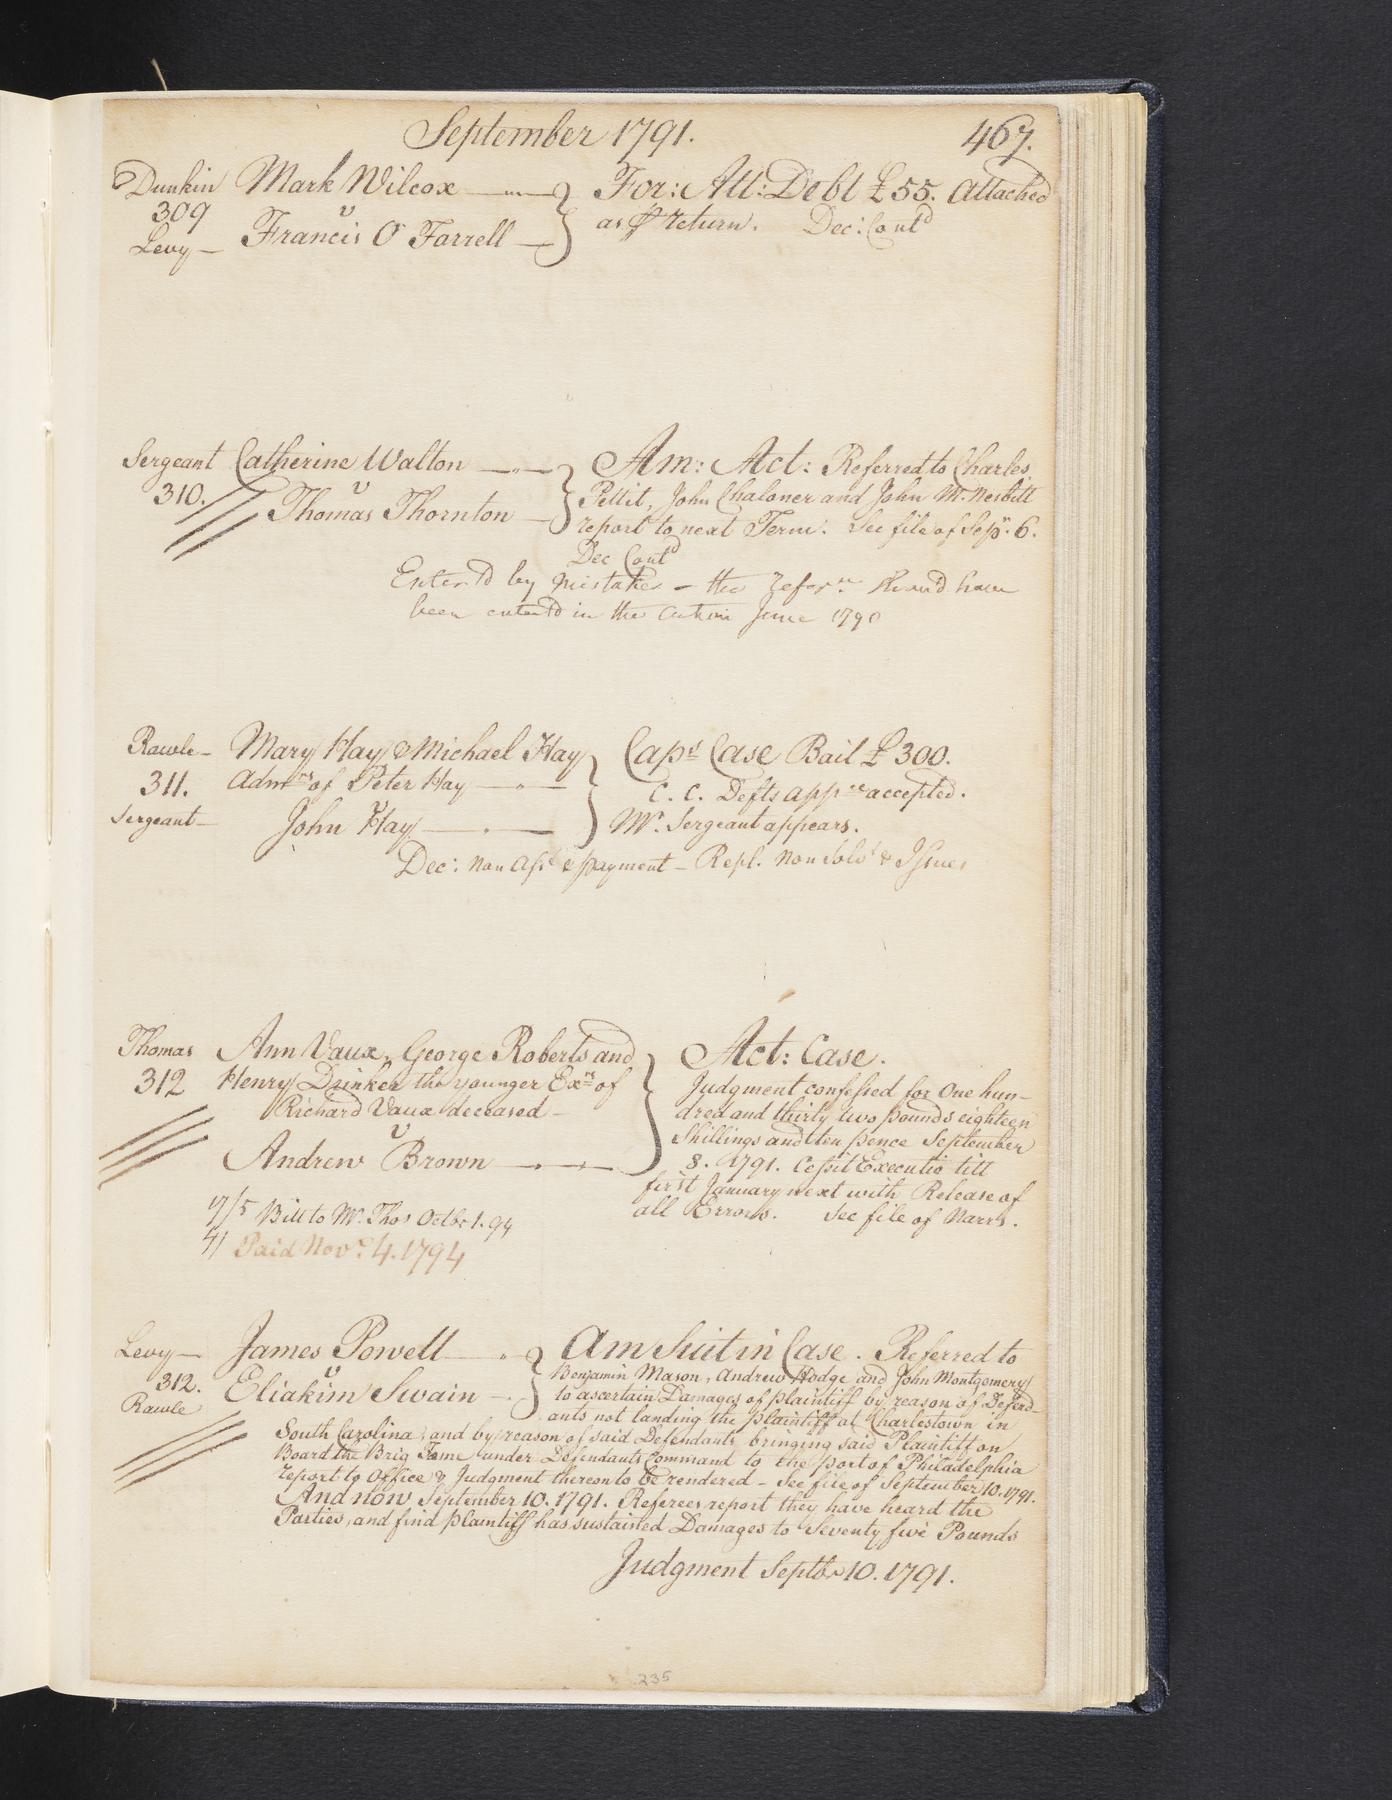 September 1791. 467.
Dunkin Mark Wilcox For: Att: Debt £55. Attached
309 v as ⅌ return. Dec: Contd
Levy Francis O Farrell
Sergeant Catherine Walton Am: Act: Referred to Charles
310. v Pettit, John Chaloner and John M. Nesbitt
Thomas Thornton report to next Term. See file of Sepr. 6.
Dec Contd
Enter'd by mistake - the referce shou'd have
been enter'd in the action June 1790
Rawle Mary Hay & Michael Hay Caps Case Bail £300.
311. Admrs of Peter Hay C. C. Defts appce accepted.
Sergeant v John Hay Mr. Sergeant appears.
Dec: Non Asst & payment - Repl. Non Solvt & Issues
Thomas Ann Vaux, George Roberts and Act: Case.
312 Henry Drinker the younger Exrs of Judgment confessed for One hun-
Richard Vaux deceased dred and thirty two pounds eighteen
v Shillings and ten pence September
Andrew Brown 8. 1791. Cessit Executio till
first January next with Release of
all Errors. See file of Narrs.
17/5 Bill to Mr. Thos Octbr 1. 94
41 Paid Novr. 4. 1794
Levy James Powell Am Suit in Case. Referred to
312. v Benjamin Mason, Andrew Hodge and John Montgomery
Rawle Eliakim Swain to ascertain Damages of plaintiff by reason of Defend-
ants not landing the plaintiff at Charlestown in
South Carolina, and by reason of said Defendants bringing said Plaintiff on
Board the Brig Fame under Defendants Command to the port of Philadelphia
report to Office & Judgment thereon to be rendered - See file of September 10. 1791.
And now September 10. 1791. Referees report they have heard the
Parties, and find plaintiff has sustained Damages to Seventy five Pounds
Judgment Septbr 10. 1791.
235